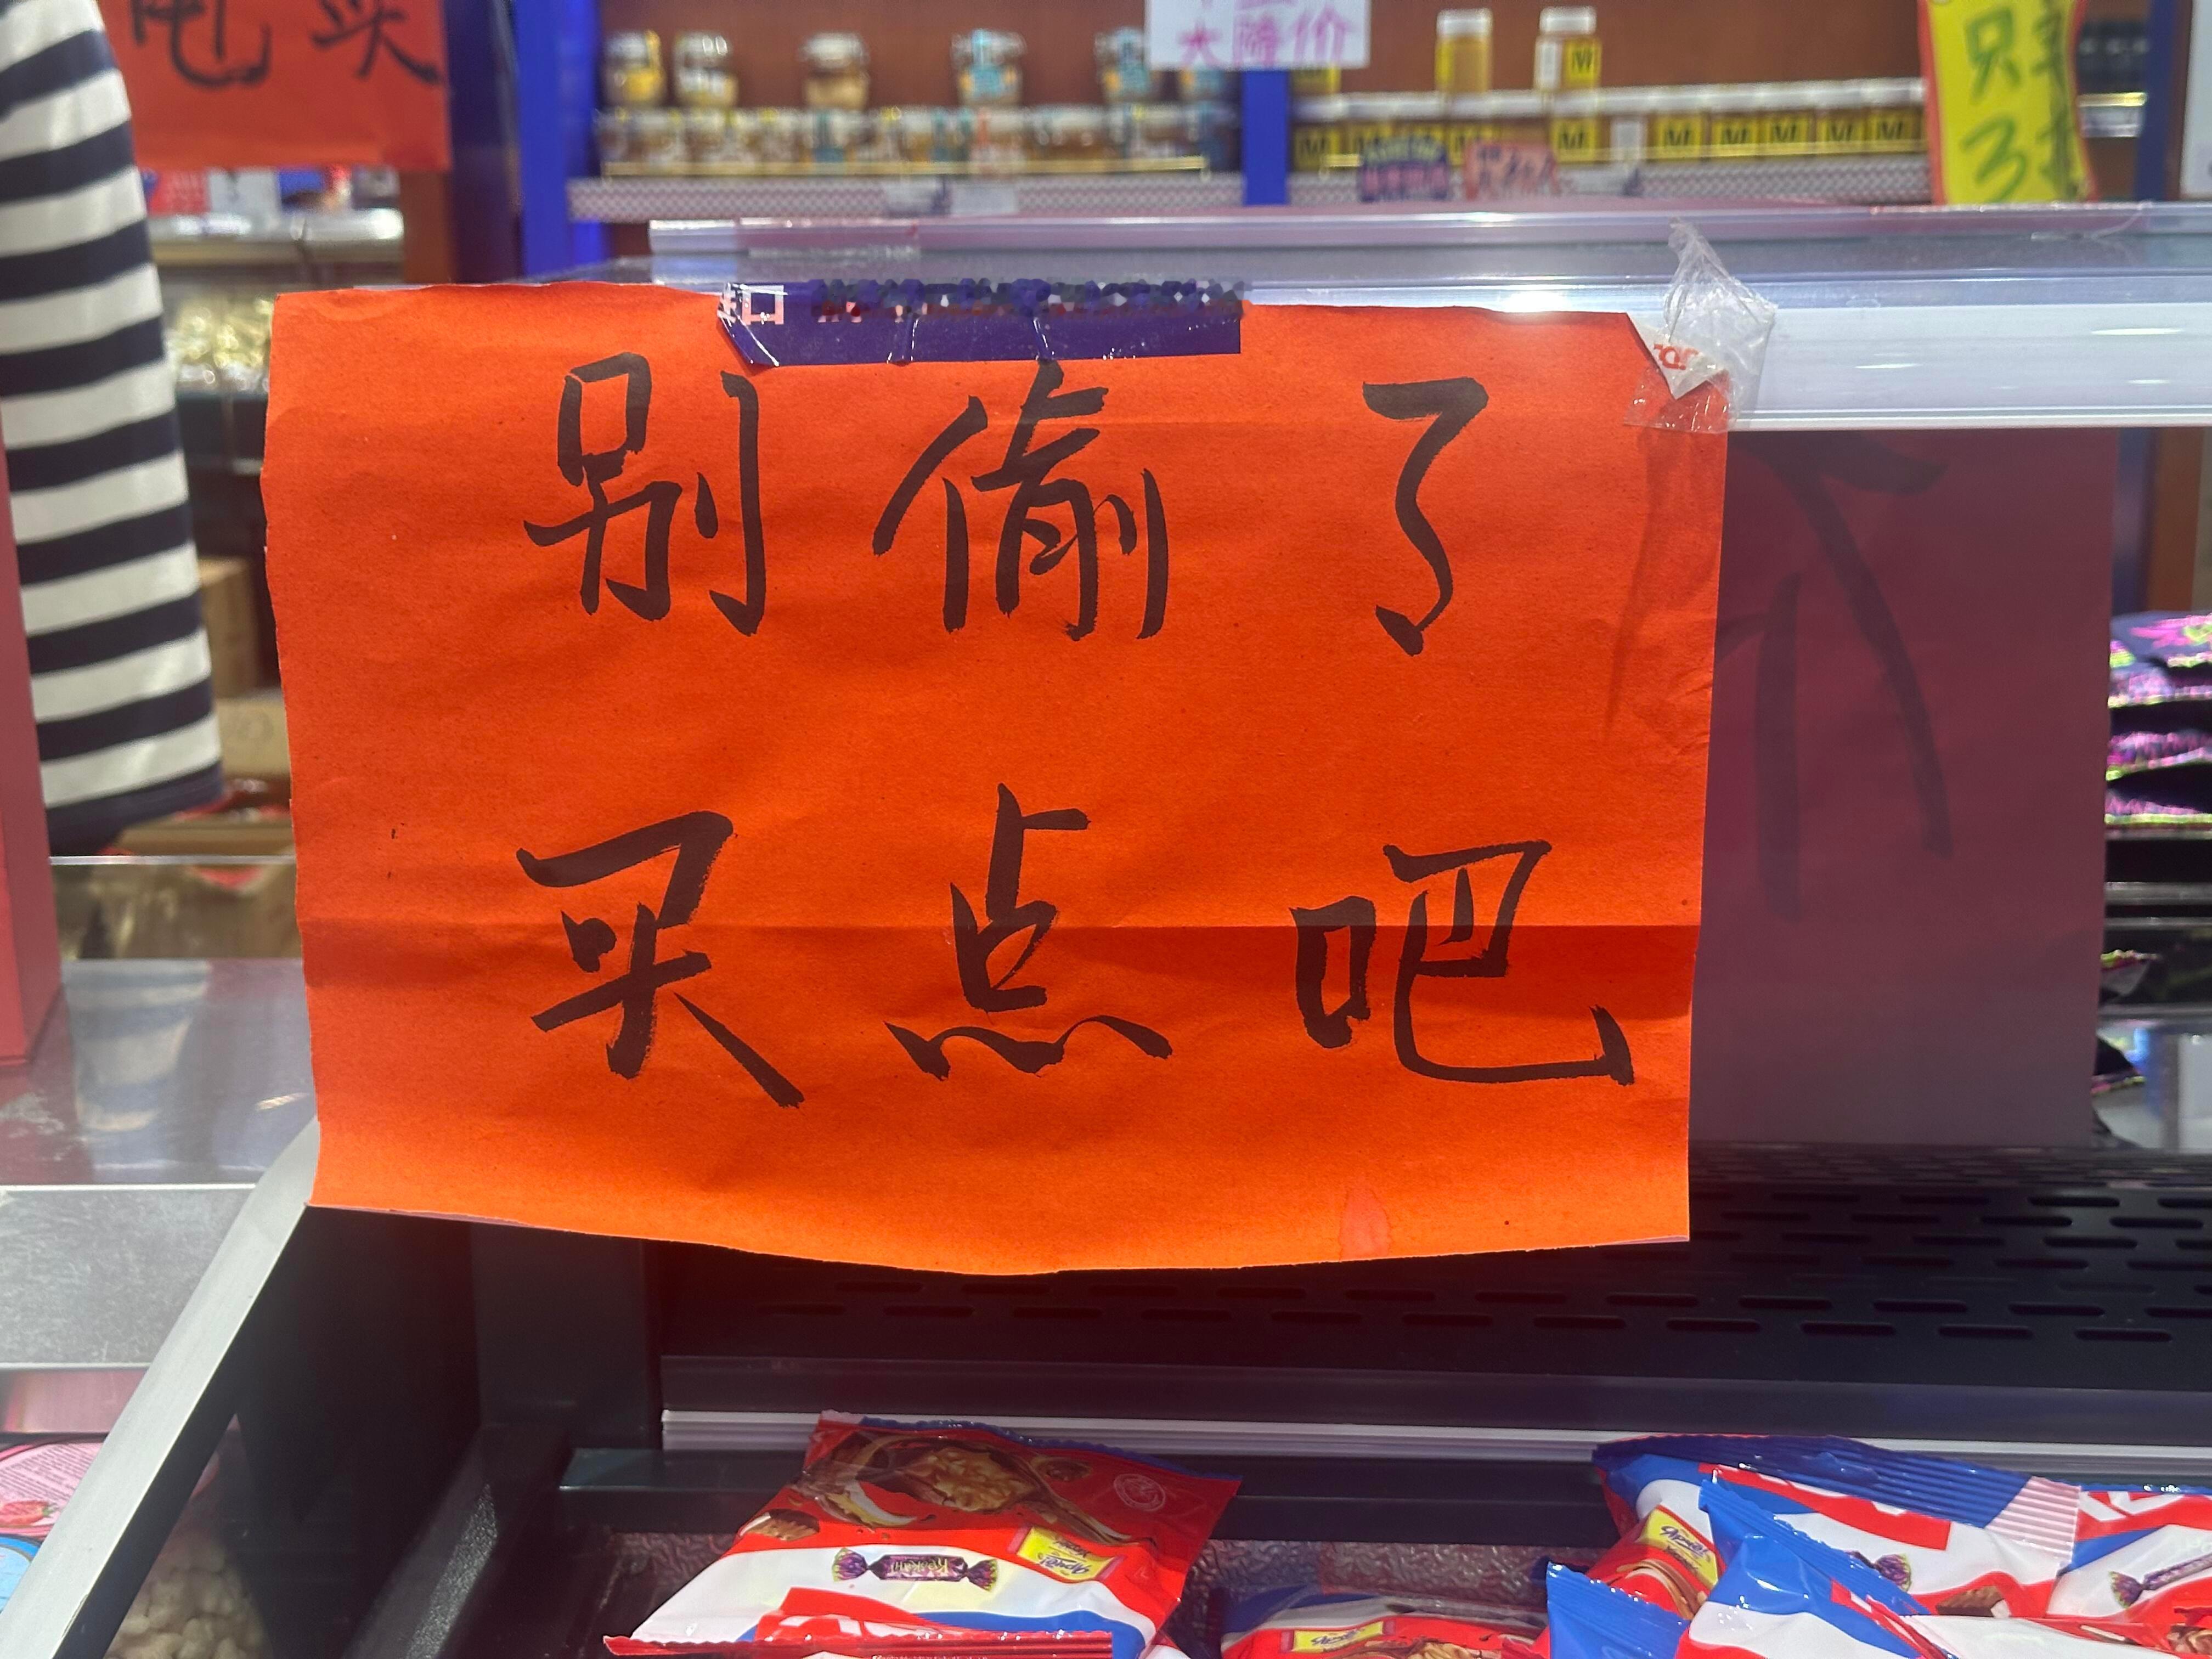 大降价
只
3
别偷了
买点吧